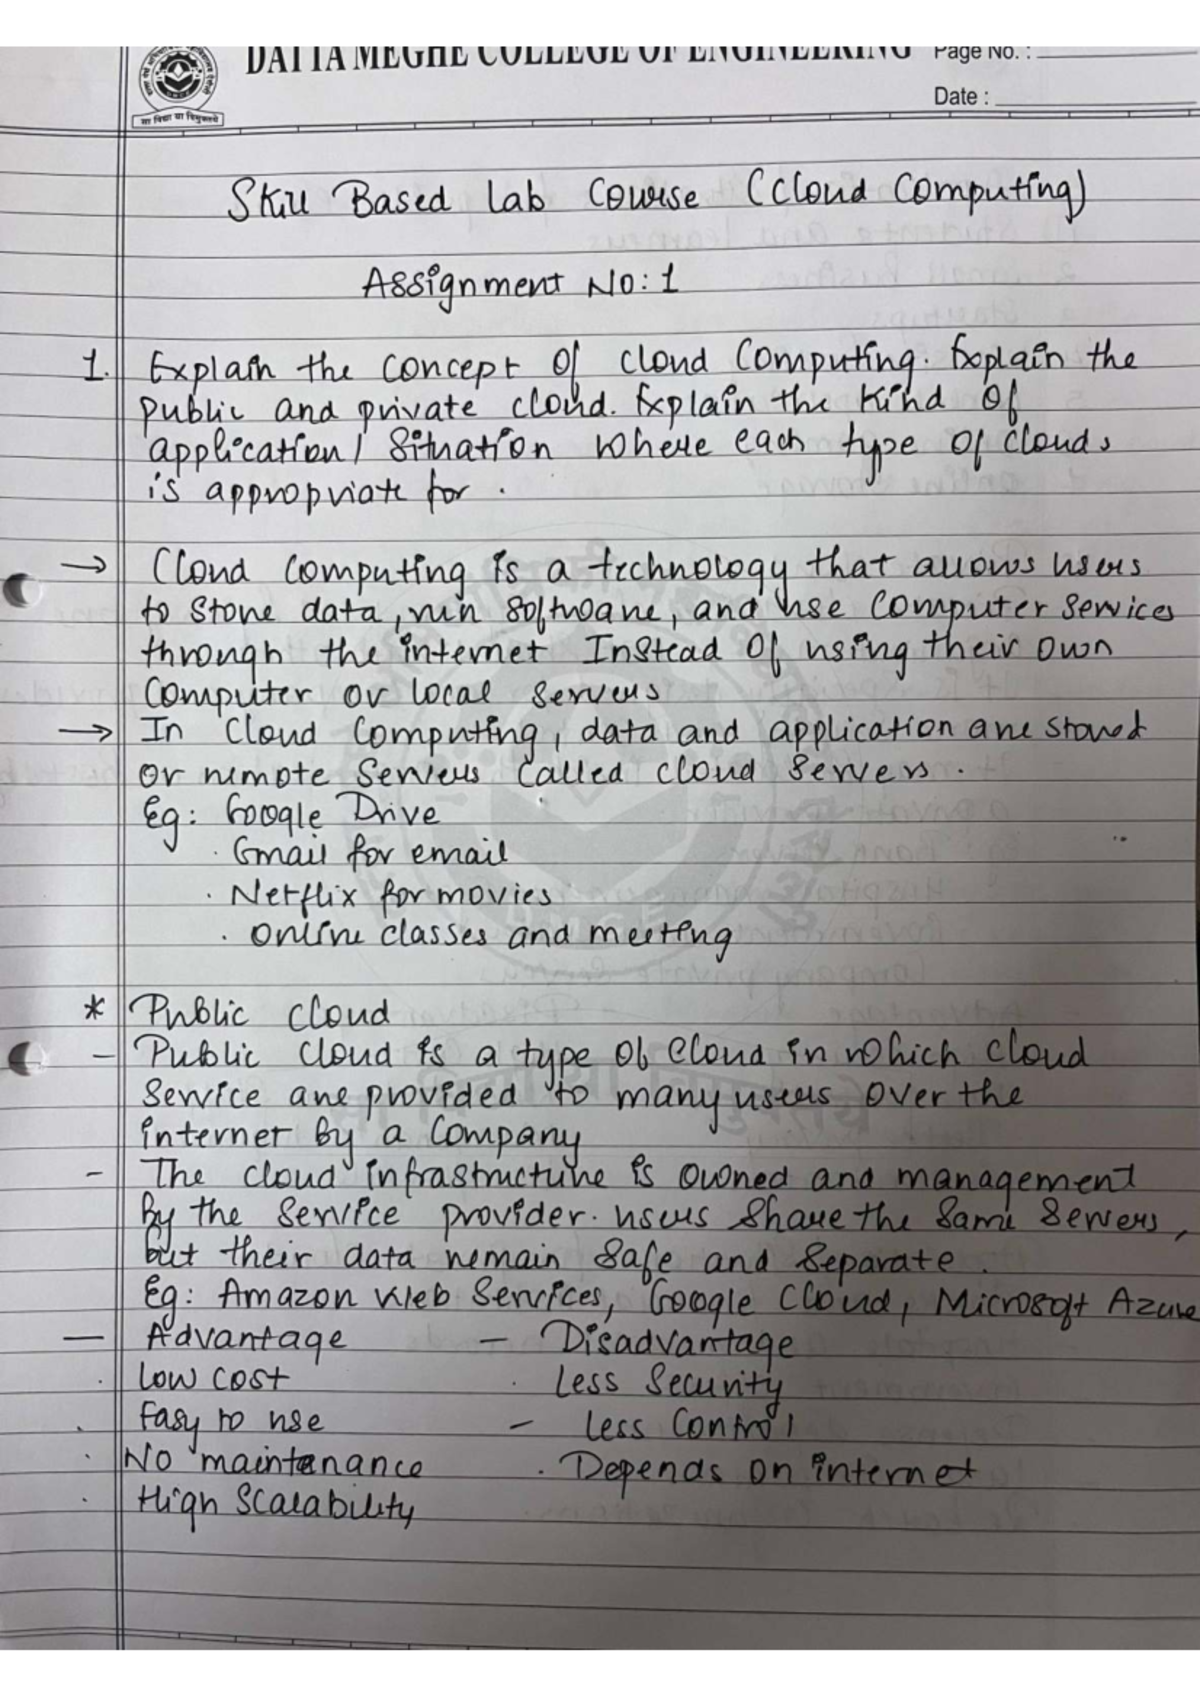 DATTA MEGHE COLLEGE OF ENGINEERING Page No. :
Date :
सा विद्या या विमुक्तये
Skill Based Lab Course (Cloud Computing)
Assignment No: 1
1. Explain the concept of cloud computing. Explain the
public and private cloud. Explain the kind of
application/ situation where each type of clouds
is appropriate for.
→ Cloud computing is a technology that allows users
to store data, run software, and use computer services
through the internet Instead of using their own
computer or local servers
→ In cloud computing, data and application are stored
or remote servers called cloud servers.
Eg: Google Drive
· Gmail for email
· Netflix for movies
· online classes and meeting
* Public cloud
- Public cloud is a type of cloud in which cloud
service are provided to many users over the
internet by a company
- The cloud infrastructure is owned and management
by the service provider. users share the same servers,
but their data remain safe and separate.
Eg: Amazon Web Services, Google Cloud, Microsoft Azure
— Advantage — Disadvantage
· Low cost · Less Security
· Easy to use - less Control
· No maintenance · Depends on internet
· High Scalability